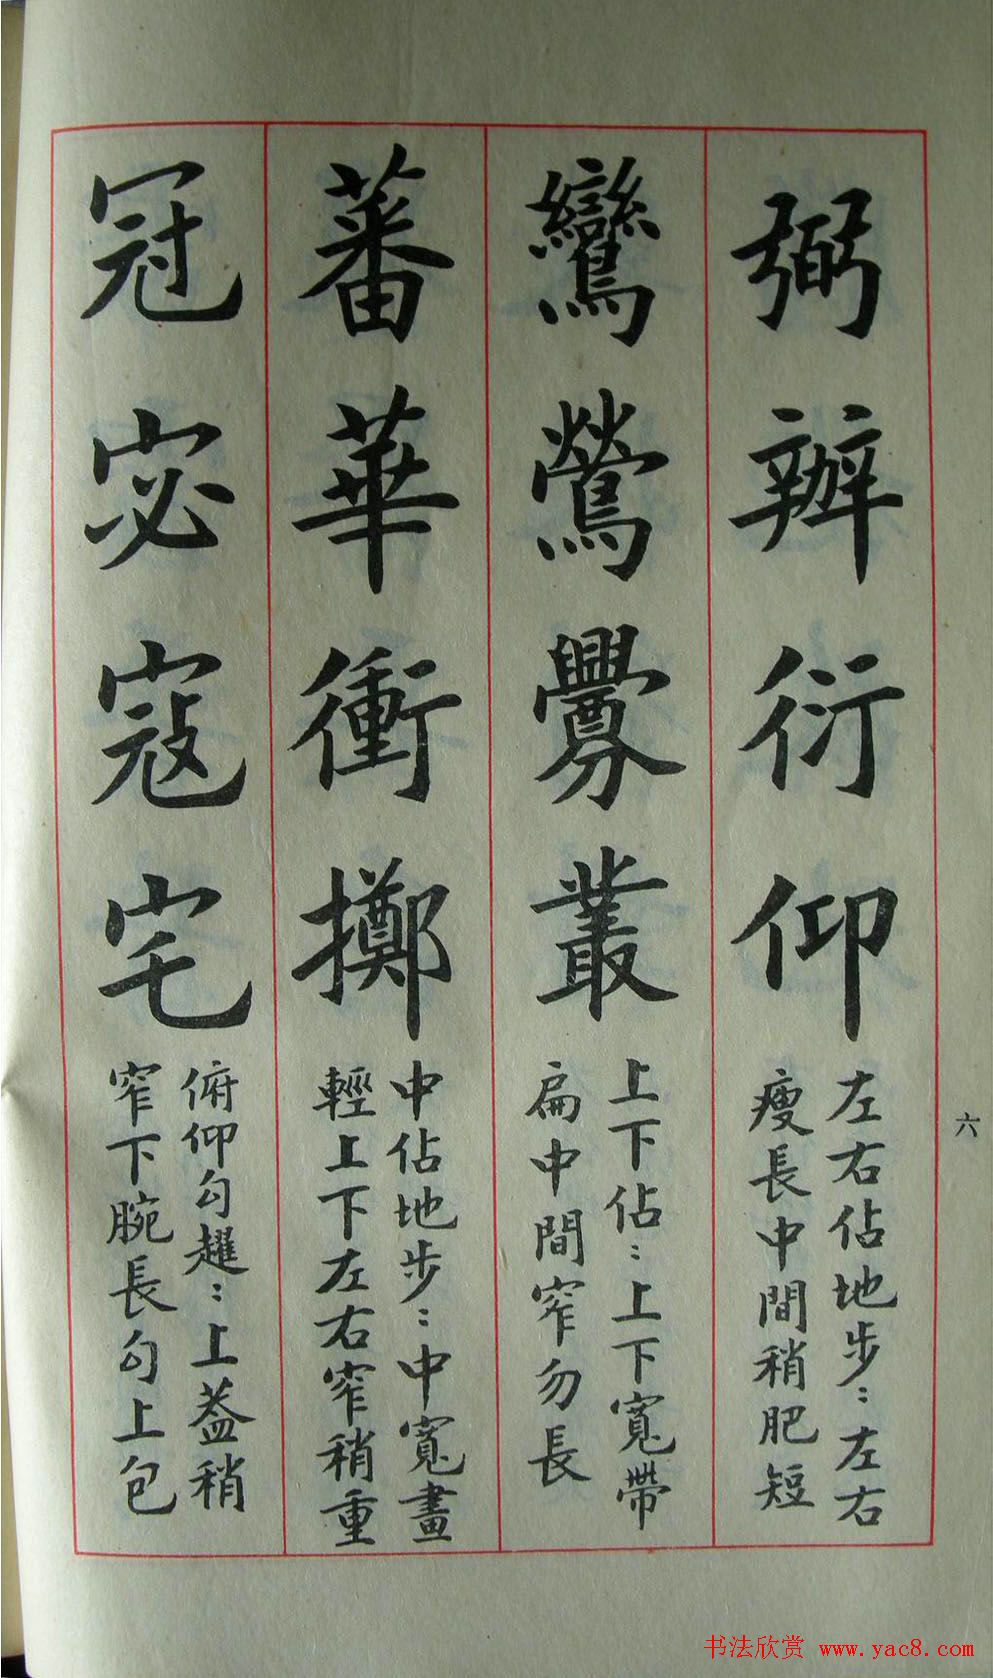 弼辦衍仰
左右佔地步：左右
瘦長中間稍肥短
鸞鶯釁叢
上下佔：上下寬帶
扁中間窄勿長
蕃華衝擲
中佔地步：中寬畫
輕上下左右窄稍重
冠宓寇宅
俯仰勾趯：上蓋稍
窄下腕長勾上包
六
书法欣赏 www.yac8.com